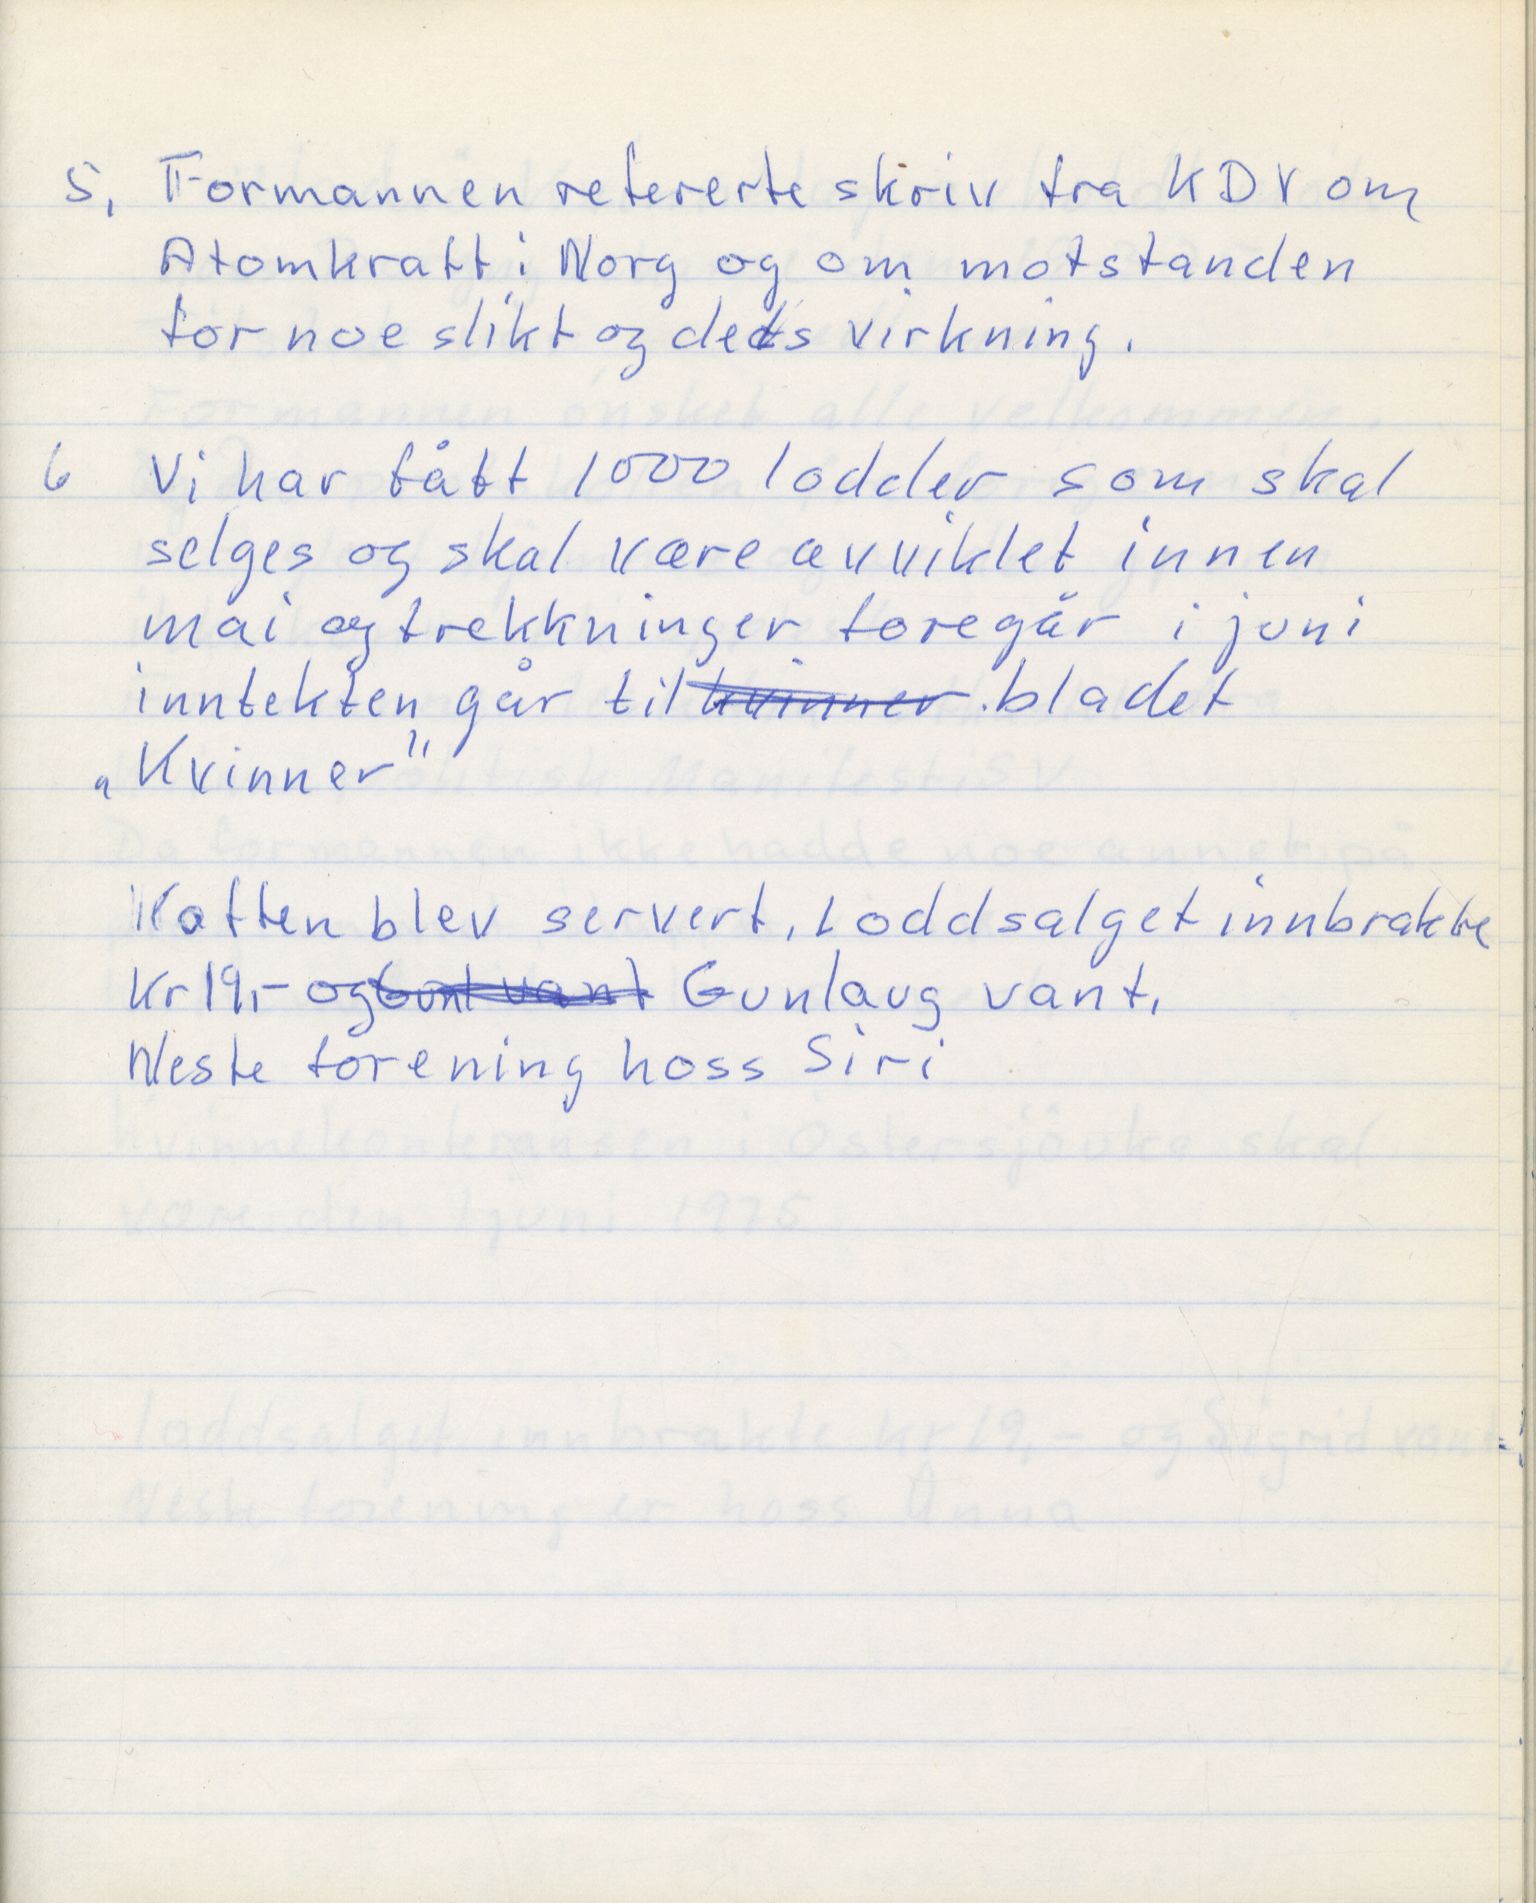 5, Formannen refererte skriv fra KDV om
Atomkraft i Norg og om motstanden
for noe slikt og dets virkning.
6 Vi har fått 1000 lodder som skal
selges og skal være avviklet innen
mai og trekkninger foregår i juni
inntekten går til kvinner. bladet
„Kvinner"
Kaffen blev servert, Loddsalget innbrakte
Kr 19,- og Gunl vant Gunlaug vant,
Neste forening hoss Siri